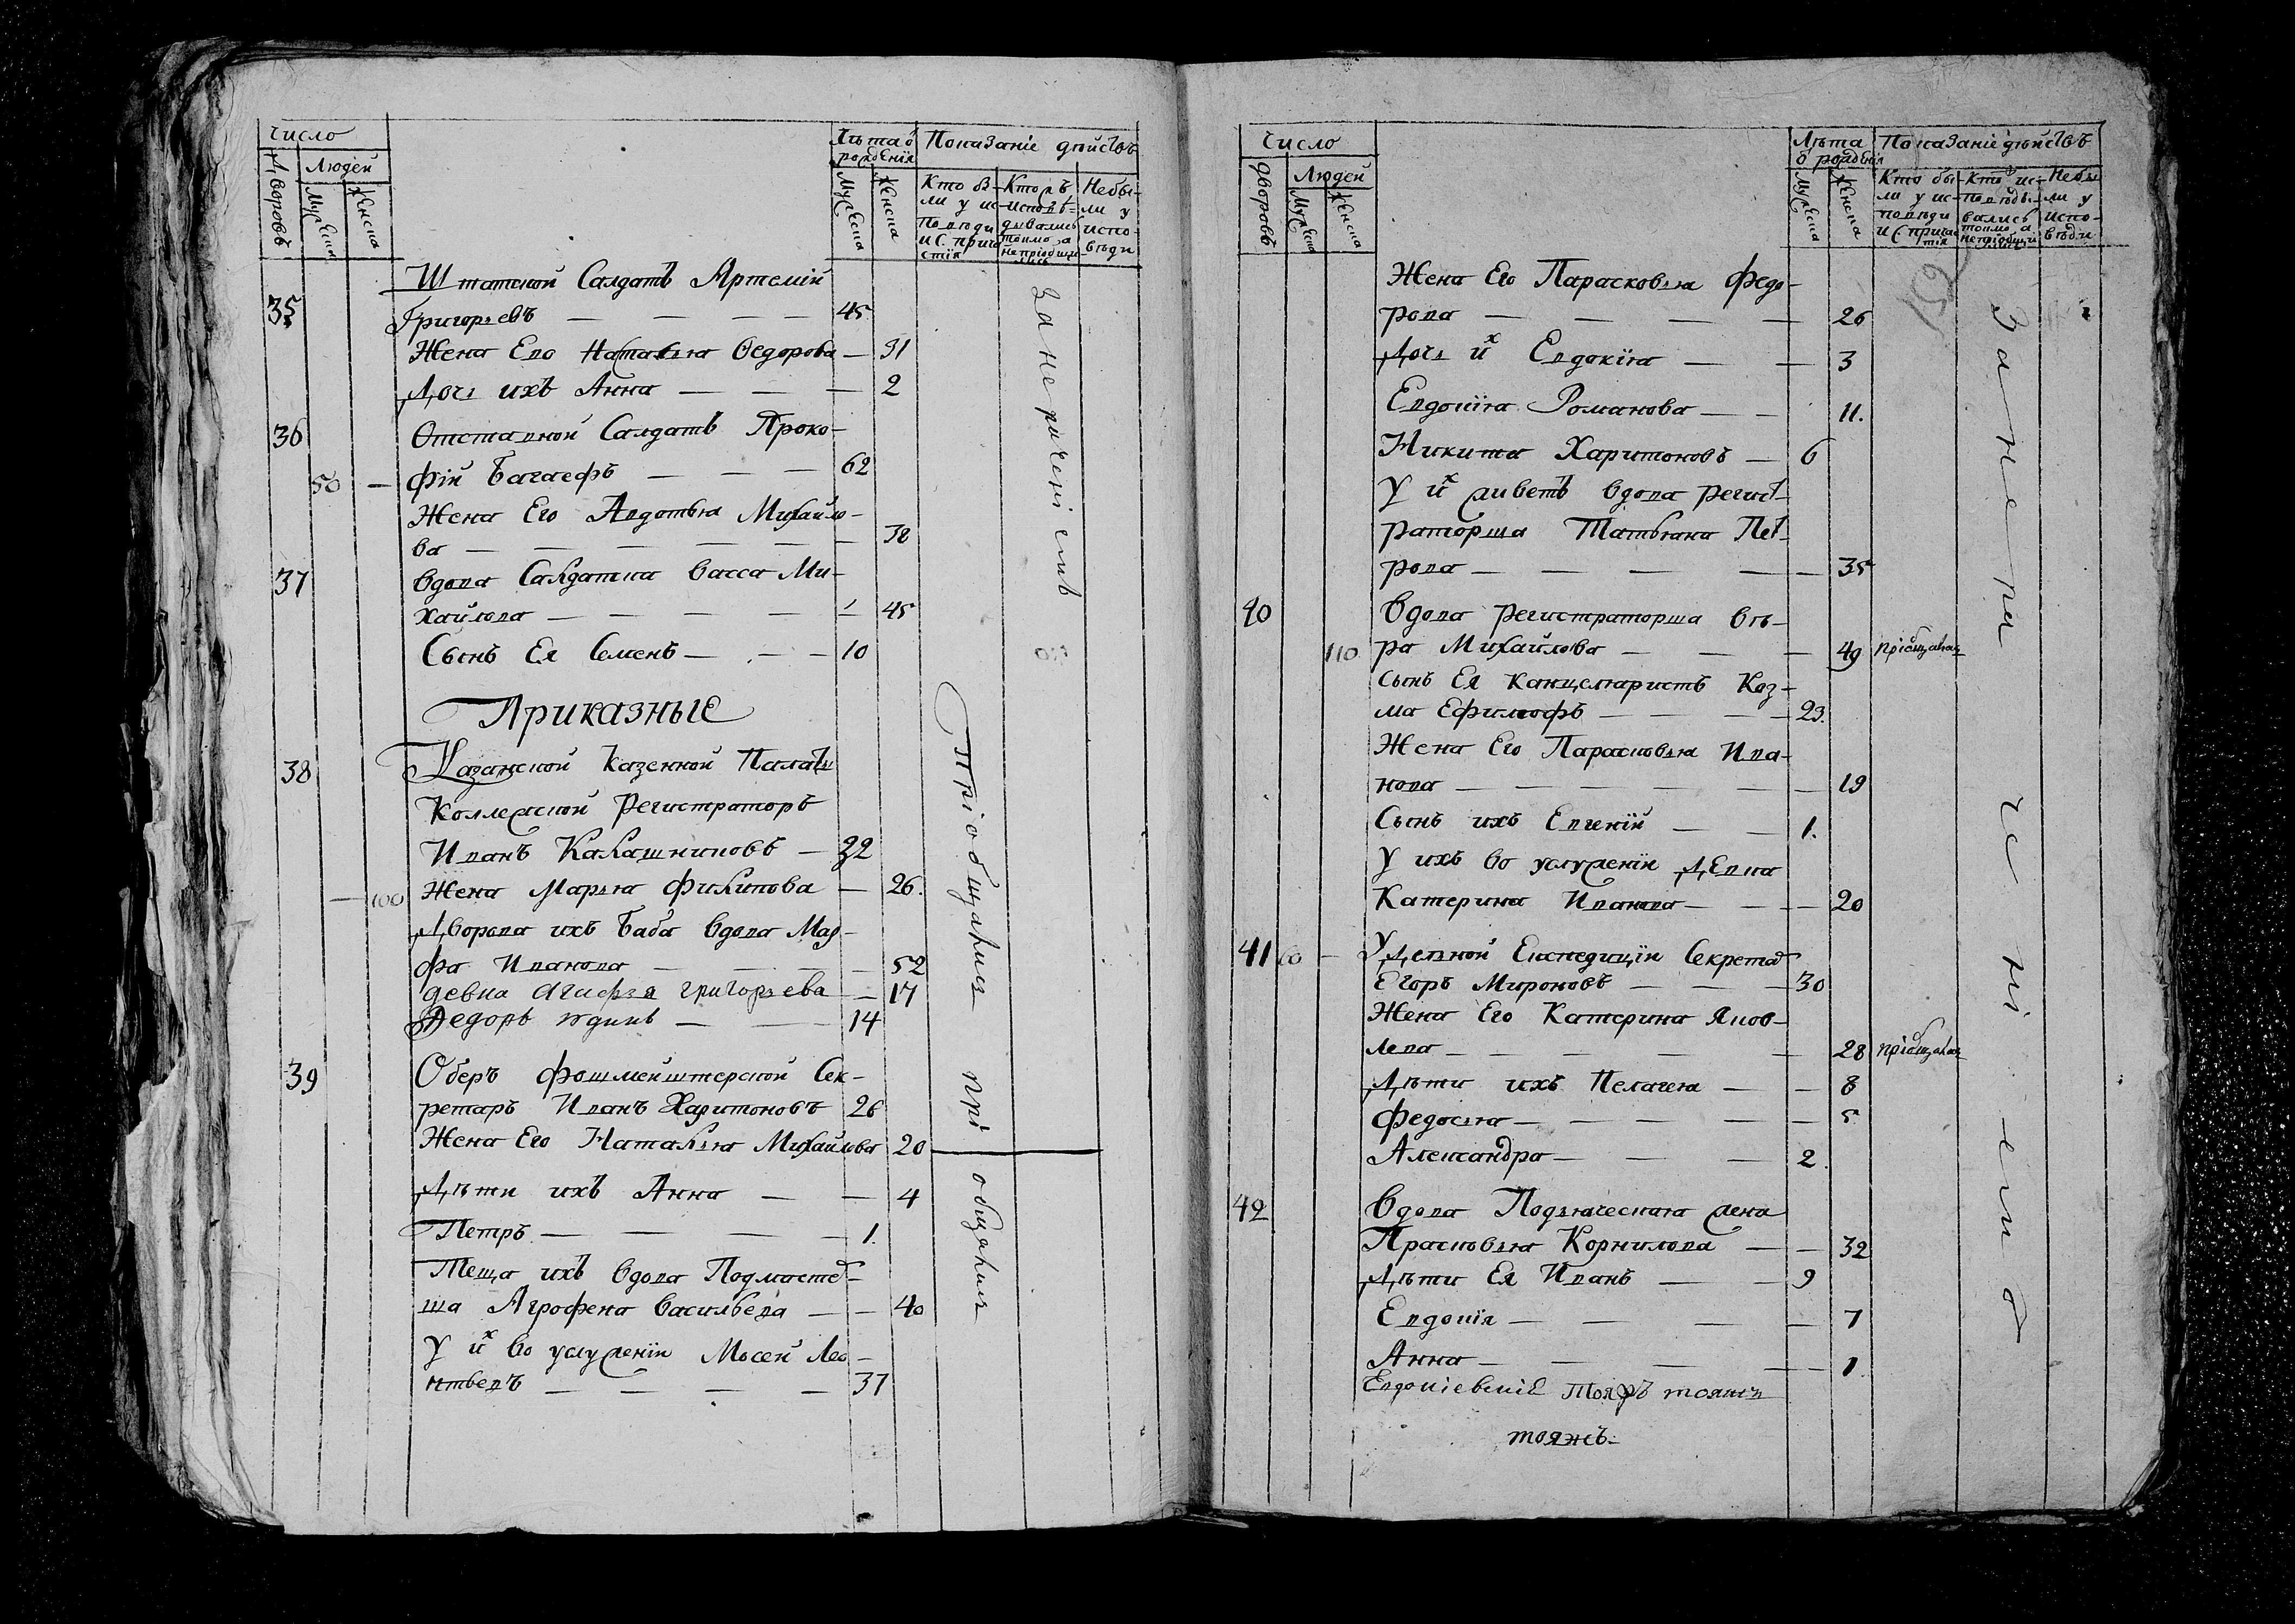 Число
Дворовъ
Людей
Мужеска
Женска
Лѣта ѿ рожденія
Мужеска
Женска
Показаніе дѣйствъ
Кто бы-
ли у ис-
повѣди
и с прича
стія
исповѣ-
дывались
токмо а
не пріобщи
лись
Небы-
ли у
испо-
вѣди
Штатской Салдатъ Артемій
35 Григорьевъ — — — — 45
Жена Его Наталья Ѳедорова — 31
Дочь ихъ Анна — — — 2
36 Отставной Салдатъ Проко-
50 — фій Багаефъ — — — 62
Жена Его Авдотья Михайло-
ва — — — — — — 38
37 Вдова Салдатка Васса Ми-
хайлова — — — — 45
Сынъ Ея Семенъ — — — 10
За неραченіемъ
Приказные
38 Казанской Казенной Палаты
Коллежской Регистраторъ
Иванъ Калашниковъ — 32
— 100 Жена Марья Филипова — 26.
Дворова ихъ баба вдова Мар-
фа Иванова — — — 52
девка Агафья григорьева — 17
Федоръ — — 14
Пріобщались
39 Оберъ форшмейштерской Сек-
ретарь Иванъ Харитоновъ 26
Жена Его Наталья Михайлова 20
Дѣти ихъ Анна — — 4
Петръ — — — — 1.
Теща ихъ вдова Подмастер-
ша Агрофена Васильева — — 40
У их во услуженіи Мосей Лео-
нтьевъ — — — — 37
пріобщались
Число
дворовъ
Людей
Мужеска
Женска
Лѣта
ѿ рожденія
Мужеска
Женска
Показаніе дѣйствъ
Кто бы
ли у ис-
повѣди
и с прича
стія
Кто ис-
повѣды-
вались
токмо а
не пріобщи
лись
Небы
ли у
испо-
вѣди
152
Жена Его Парасковья Федо-
рова — — — — 26
Дочь их Евдокія — — 3
Евдокія Романова — — 11.
Никита Харитоновъ — 6
У их живетъ вдова регист-
раторша Татьяна Пет-
рова — — — — — 35
40 Вдова регистраторша Вѣ-
110 ра Михайлова — — — 49 пріобщалась
Сынъ Ея Канцеляристъ Коз-
ма Ефимофъ — — — — 23.
Жена Его Парасковья Ива-
нова — — — — — — 19
Сынъ ихъ Евгеній — — 1.
У ихъ во услуженіи Девка
Катерина Иванова — — — 20
41 60 — Удельной Експедиціи Секретарь
Егоръ Мироновъ — — — 30
Жена Его Катерина Яков-
лева — — — — — 28 пріобщалась
Дѣти ихъ Пелагея — — 8
Федосья — — — — — 5
Александра — — — 2.
42 Вдова Подьяческая жена
Прасковья Корнилова — — 32
Дѣти Ея Иванъ — — 9
Евдокія — — — — 7
Анна — — — — 1
За нераченіемъ